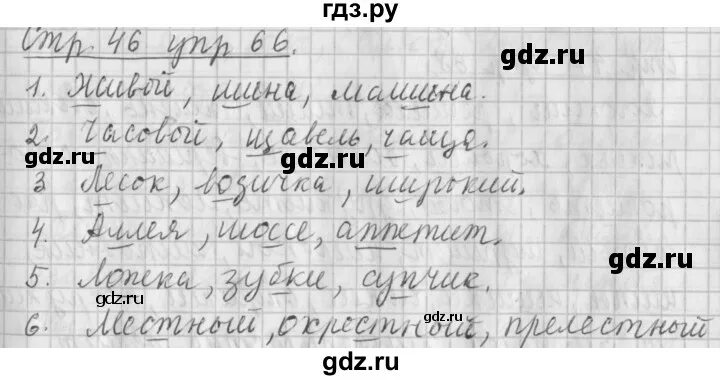 гдз.ру
Стр. 46 упр 66.
gdz.ru
1. Живой, шина, машина.
gdz.ru
2. Часовой, щавель, чаща.
gdz.ru
3 Лесок, возичка, широкий.
4. Аллея, шоссе, аппетит.
gdz.ru
5. Лопека, зубки, супчик.
gdz.ru
6. Местный, окрестный, прелестный
gdz.ru